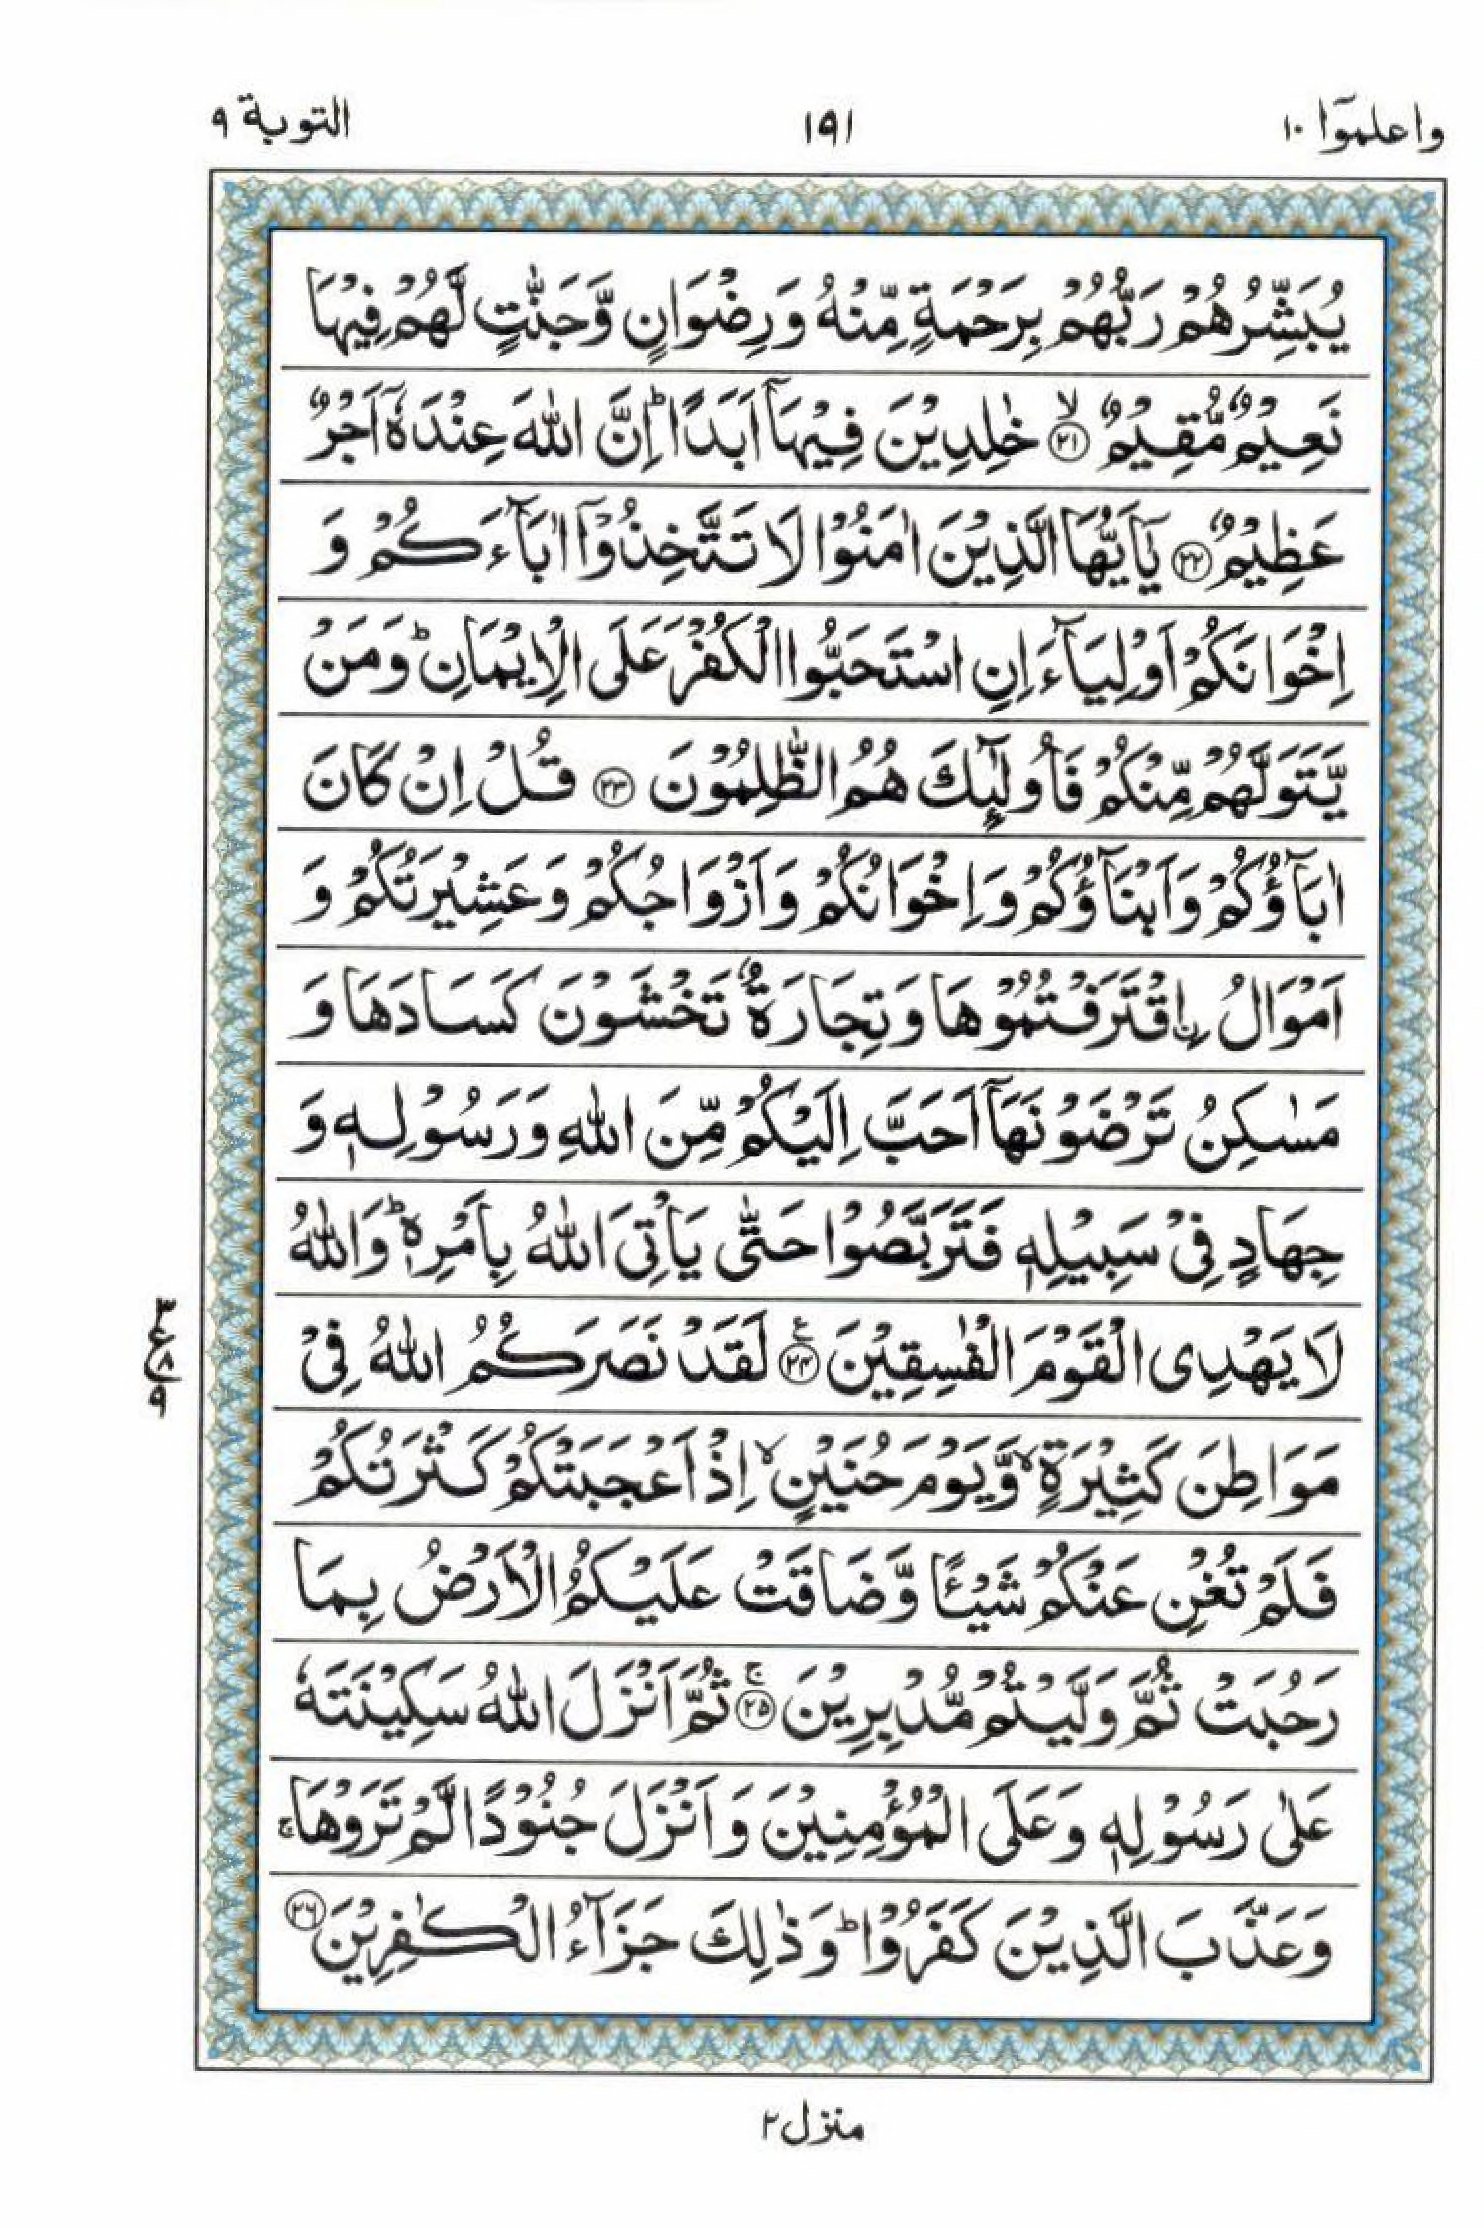 واعلموٓا ١٠
١٩١
التوبة ٩
يُبَشِّرُهُمْ رَبُّهُمْ بِرَحْمَةٍ مِّنْهُ وَرِضْوَانٍ وَّجَنّٰتٍ لَّهُمْ فِيْهَا
نَعِيْمٌ مُّقِيْمٌ ۙ﴿٢١﴾ خٰلِدِيْنَ فِيْهَآ اَبَدًا ؕ اِنَّ اللّٰهَ عِنْدَهٗۤ اَجْرٌ
عَظِيْمٌ ﴿٢٢﴾ يٰٓاَيُّهَا الَّذِيْنَ اٰمَنُوْا لَا تَتَّخِذُوْٓا اٰبَآءَكُمْ وَ
اِخْوَانَكُمْ اَوْلِيَآءَ اِنِ اسْتَحَبُّوا الْكُفْرَ عَلَى الْاِيْمَانِ ؕ وَمَنْ
يَّتَوَلَّهُمْ مِّنْكُمْ فَاُولٰٓئِكَ هُمُ الظّٰلِمُوْنَ ﴿٢٣﴾ قُلْ اِنْ كَانَ
اٰبَآؤُكُمْ وَاَبْنَآؤُكُمْ وَاِخْوَانُكُمْ وَاَزْوَاجُكُمْ وَعَشِيْرَتُكُمْ وَ
اَمْوَالُ ِۨاقْتَرَفْتُمُوْهَا وَتِجَارَةٌ تَخْشَوْنَ كَسَادَهَا وَ
مَسٰكِنُ تَرْضَوْنَهَآ اَحَبَّ اِلَيْكُمْ مِّنَ اللّٰهِ وَرَسُوْلِهٖ وَ
جِهَادٍ فِيْ سَبِيْلِهٖ فَتَرَبَّصُوْا حَتّٰى يَاْتِيَ اللّٰهُ بِاَمْرِهٖ ؕ وَاللّٰهُ
لَا يَهْدِى الْقَوْمَ الْفٰسِقِيْنَ ﴿٢٤﴾ ع لَقَدْ نَصَرَكُمُ اللّٰهُ فِيْ
٣ ع ٨ ٩
مَوَاطِنَ كَثِيْرَةٍ ۙ وَّيَوْمَ حُنَيْنٍ ۙ اِذْ اَعْجَبَتْكُمْ كَثْرَتُكُمْ
فَلَمْ تُغْنِ عَنْكُمْ شَيْـًٔا وَّضَاقَتْ عَلَيْكُمُ الْاَرْضُ بِمَا
رَحُبَتْ ثُمَّ وَلَّيْتُمْ مُّدْبِرِيْنَ ۚ﴿٢٥﴾ ثُمَّ اَنْزَلَ اللّٰهُ سَكِيْنَتَهٗ
عَلٰى رَسُوْلِهٖ وَعَلَى الْمُؤْمِنِيْنَ وَاَنْزَلَ جُنُوْدًا لَّمْ تَرَوْهَا ۚ
وَعَذَّبَ الَّذِيْنَ كَفَرُوْا ؕ وَذٰلِكَ جَزَآءُ الْكٰفِرِيْنَ ﴿٢٦﴾
منزل ٢